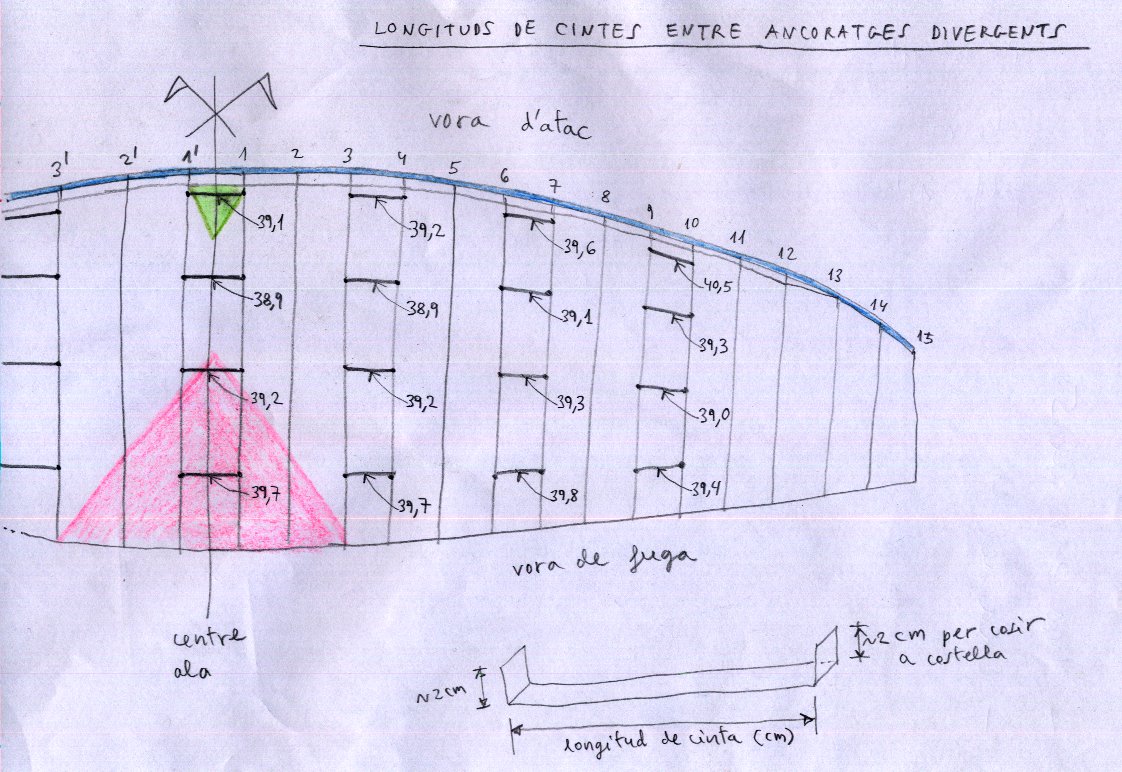 LONGITUDS DE CINTES ENTRE ANCORATGES DIVERGENTS
vora d'atac
3' 2' 1' 1 2 3 4 5 6 7 8 9 10 11 12 13 14 15
39,1 39,2 39,6 40,5
38,9 38,9 39,1 39,3
39,2 39,2 39,3 39,0
39,7 39,7 39,8 39,4
vora de fuga
centre
ala
~2cm
~2 cm per cosir
a costella
longitud de cinta (cm)